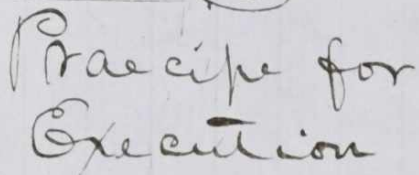 Praecipe for
Execution